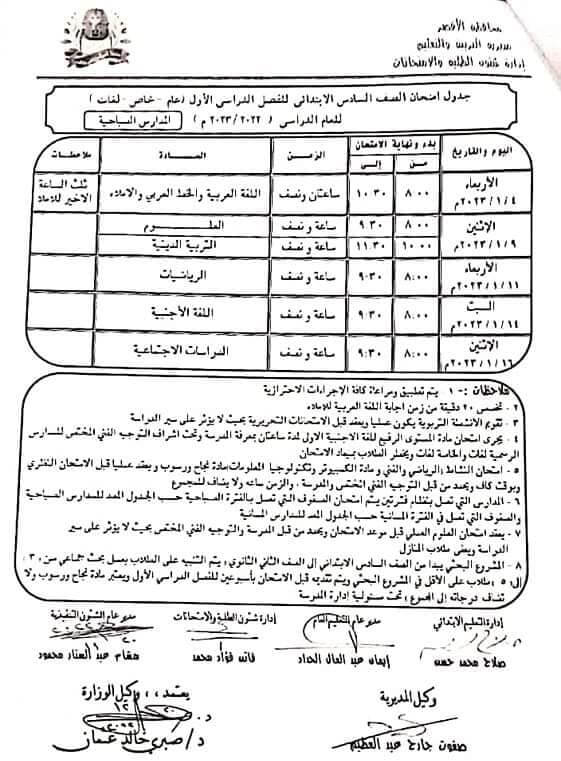 محافظة الأقصر
مديرية التربية والتعليم
إدارة شئون الطلبة والامتحانات
جدول امتحان الصف السادس الابتدائى للفصل الدراسى الأول (عام - خاص - لغات)
للعام الدراسى (٢٠٢٣/٢٠٢٢ م) المدارس الصباحية
اليوم والتاريخ بدء ونهاية الامتحان الزمن المادة ملاحظات
من إلى
الأربعاء ٢٠٢٣/١/٤م ٨.٠٠ ١٠.٣٠ ساعتان ونصف اللغة العربية والخط العربي والاملاء ثلث الساعة الاخير للاملاء
الإثنين ٢٠٢٣/١/٩م ٨.٠٠ ٩.٣٠ ساعة و نصف العلوم
١٠.٠٠ ١١.٣٠ ساعة و نصف التربية الدينية
الأربعاء ٢٠٢٣/١/١١م ٨:٠٠ ٩:٣٠ ساعة ونصف الرياضيات
السبت ٢٠٢٣/١/١٤م ٨:٠٠ ٩:٣٠ ساعة ونصف اللغة الأجنبية
الإثنين ٢٠٢٣/١/١٦م ٨:٠٠ ٩:٣٠ ساعة ونصف الدراسات الاجتماعية
ملاحظات :- ١ يتم تطبيق ومراعاة كافة الإجراءات الاحترازية
٢ - تخصص ٢٠ دقيقة من زمن اجابة اللغة العربية للاملاء
٣ - تقويم الأنشطة التربوية يكون عمليا ويعقد قبل الامتحانات التحريرية بحيث لا يؤثر على سير الدراسة
٤ - يجرى امتحان مادة المستوى الرفيع للغة الاجنبية الاولى لمدة ساعتان بمعرفة المدرسة وتحت اشراف التوجيه الفني المختص للمدارس
الرسمية لغات والخاصة لغات ويخطر الطلاب بميعاد الامتحان
٥ - امتحان النشاط الرياضي والفني و مادة الكمبيوتر وتكنولوجيا المعلومات مادة نجاح ورسوب و يعقد عمليا قبل الامتحان النظري
وبوقت كاف ويحدد من قبل التوجيه الفني المختص والمدرسة ، والزمن ساعة ولا يضاف للمجموع
٦ - المدارس التي تعمل بنظام فترتين يتم امتحان الصفوف التي تعمل بالفترة الصباحية حسب الجدول المعد للمدارس الصباحية
والصفوف التي تعمل في الفترة المسائية حسب الجدول المعد للمدارس المسائية
٧ - يعقد امتحان العلوم العملي قبل موعد الامتحان ويحدد من قبل المدرسة والتوجيه الفني المختص بحيث لا يؤثر على سير
الدراسة ويعفى طلاب المنازل
٨ - المشروع البحثي يبدأ من الصف السادس الابتدائي إلى الصف الثاني الثانوي ، يتم التنبيه على الطلاب بعمل بحث جماعي من ٣ :
إلى ٥ طلاب على الأقل في المشروع البحثي ويتم تقديمه قبل الامتحان بأسبوعين للفصل الدراسي الأول ويعتبر مادة نجاح ورسوب ولا
تضاف درجاته إلى المجموع وتحت مسئولية إدارة المدرسة
إدارة التعليم الإبتدائي مدير عام التعليم العام إدارة شئون الطلبة والامتحانات مدير عام الشئون التنفيذية
صلاح محمد حسن إيمان عبد العال الحداد فاتن فؤاد محمد هشام عبد الستار محمود
وكيل المديرية يعتمد ،، وكيل الوزارة
صفوت جارح عبد العظيم د/ صبري خالد عثمان